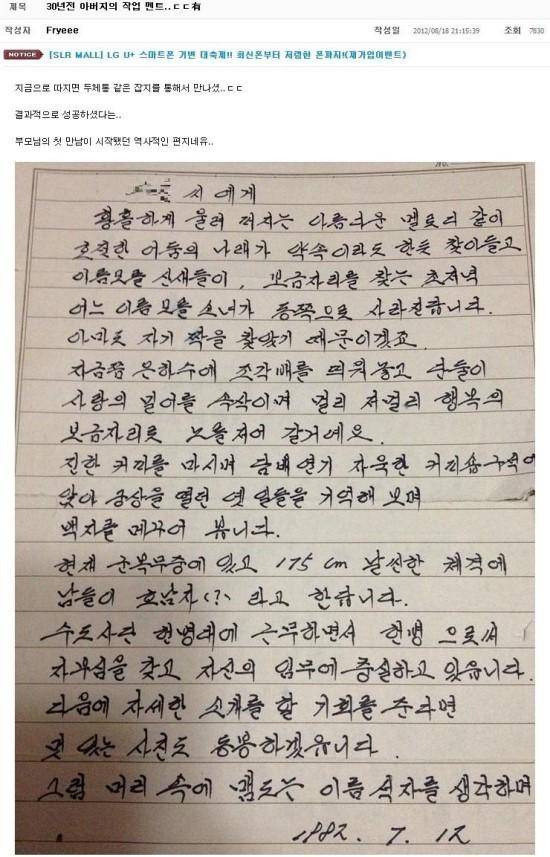 제목 30년전 아버지의 작업 멘트..ㄷㄷ有
작성자 Fryeee 작성일 2012/08/18 21:15:39 조회 7830
NOTICE [SLR MALL] LG U+ 스마트폰 기변 대축제!! 최신폰부터 저렴한 폰까지!(재가입이벤트)
지금으로 따지면 두체통 같은 잡지를 통해서 만나셨..ㄷㄷ
결과적으로 성공하셨다는..
부모님의 첫 만남이 시작됐던 역사적인 편지네유..
No.
씨에게
황홀하게 울려 퍼지는 아름다운 멜로디 같이
호젓한 어둠의 나래가 약속이라도 한듯 찾아들고
이름모를 산새들이, 보금자리를 찾는 초저녁
어느 이름 모를 소녀가 동쪽으로 사라진답니다.
아마도 자기 짝을 찾았기 때문이겠죠.
지금쯤 은하수에 조각배를 띄워놓고 단둘이
사랑의 밀어를 속삭이며 멀리 저멀리 행복의
보금자리로 노를 저어 갈거예요.
진한 커피를 마시며 담배연기 자욱한 커피숍 구석에
앉아 공상을 떨던 옛 일들을 기억해 보며
백지를 메꾸어 봅니다.
현재 군복무중에 있고 175cm 날씬한 체격에
남들이 호남자(?) 라고 한답니다.
수도사단 헌병대에 근무하면서 헌병 으로써
자부심을 갖고 자신의 임무에 충실하고 있읍니다.
다음에 자세한 소개를 할 기회를 준다면
멋 있는 사진도 동봉하겠읍니다.
그럼 머리 속에 맴도는 이름 석자를 생각하며
1982. 7. 12